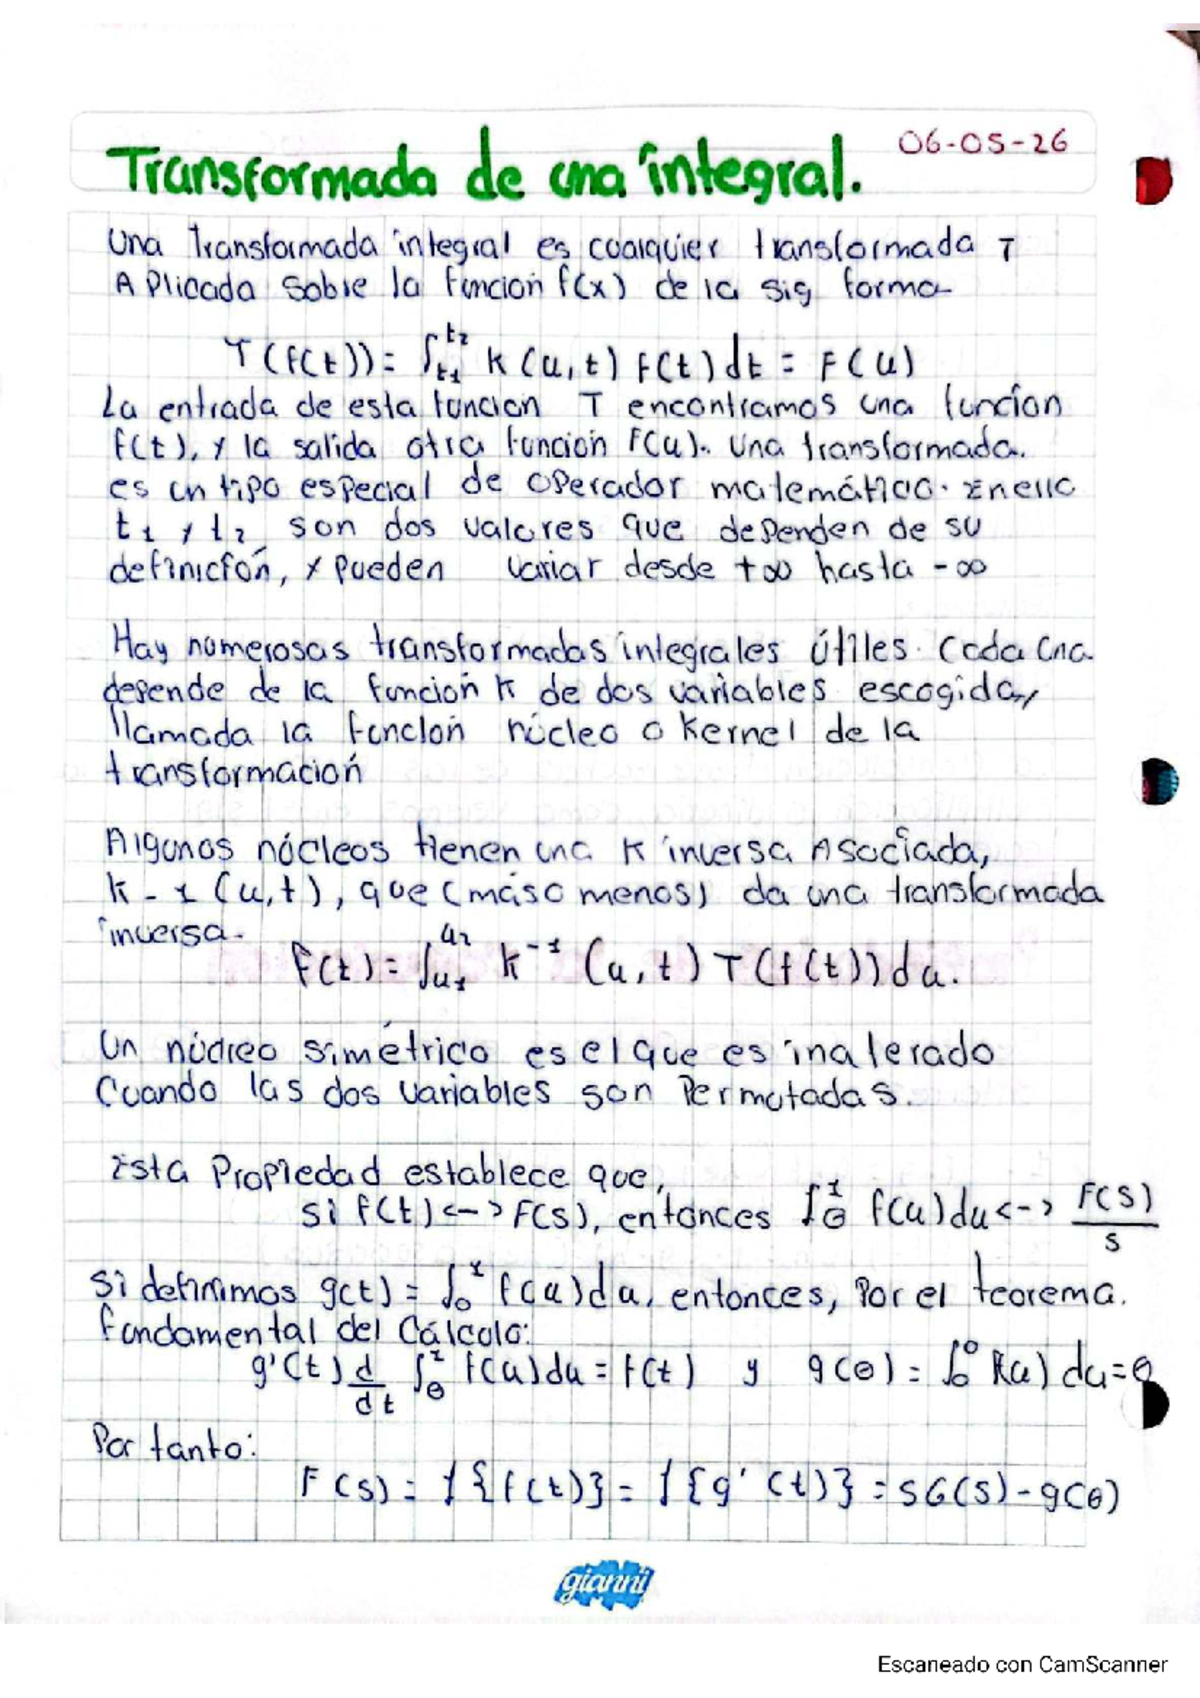 Transformada de una integral.
06-05-26
Una transformada integral es cualquier transformada T
Aplicada sobre la función f(x) de la sig forma
T(f(t)) = ∫ₜ₁ᵗ² K(u,t) f(t) dt = F(u)
La entrada de esta función T encontramos una función
f(t), y la salida otra función F(u). Una transformada.
es un tipo especial de operador matemático. En ello
t₁ y t₂ son dos valores que dependen de su
definición, y pueden variar desde +∞ hasta -∞
Hay numerosas transformadas integrales útiles. Cada una
depende de la función K de dos variables escogida,
llamada la función núcleo o Kernel de la
transformación
Algunos núcleos tienen una K inversa Asociada,
k-1 (u,t), que (más o menos) da una transformada
inversa.
F(t) = ∫ᵤ₁ᵘ² K⁻¹ (u,t) T(f(t)) du.
Un núcleo simétrico es el que es inalterado
Cuando las dos variables son Permutadas.
Esta Propiedad establece que,
si f(t) <-> F(s), entonces ∫₀ᵗ f(u)du <-> F(s)/s
Si definimos g(t) = ∫₀ᵗ f(u)du, entonces, Por el teorema.
fundamental del Cálculo:
g'(t) d/dt ∫₀ᵗ f(u)du = f(t) y g(0) = ∫₀⁰ f(u) du = 0
Por tanto:
F(s) = ℒ{f(t)} = ℒ{g'(t)} = sG(s) - g(0)
gianni
Escaneado con CamScanner